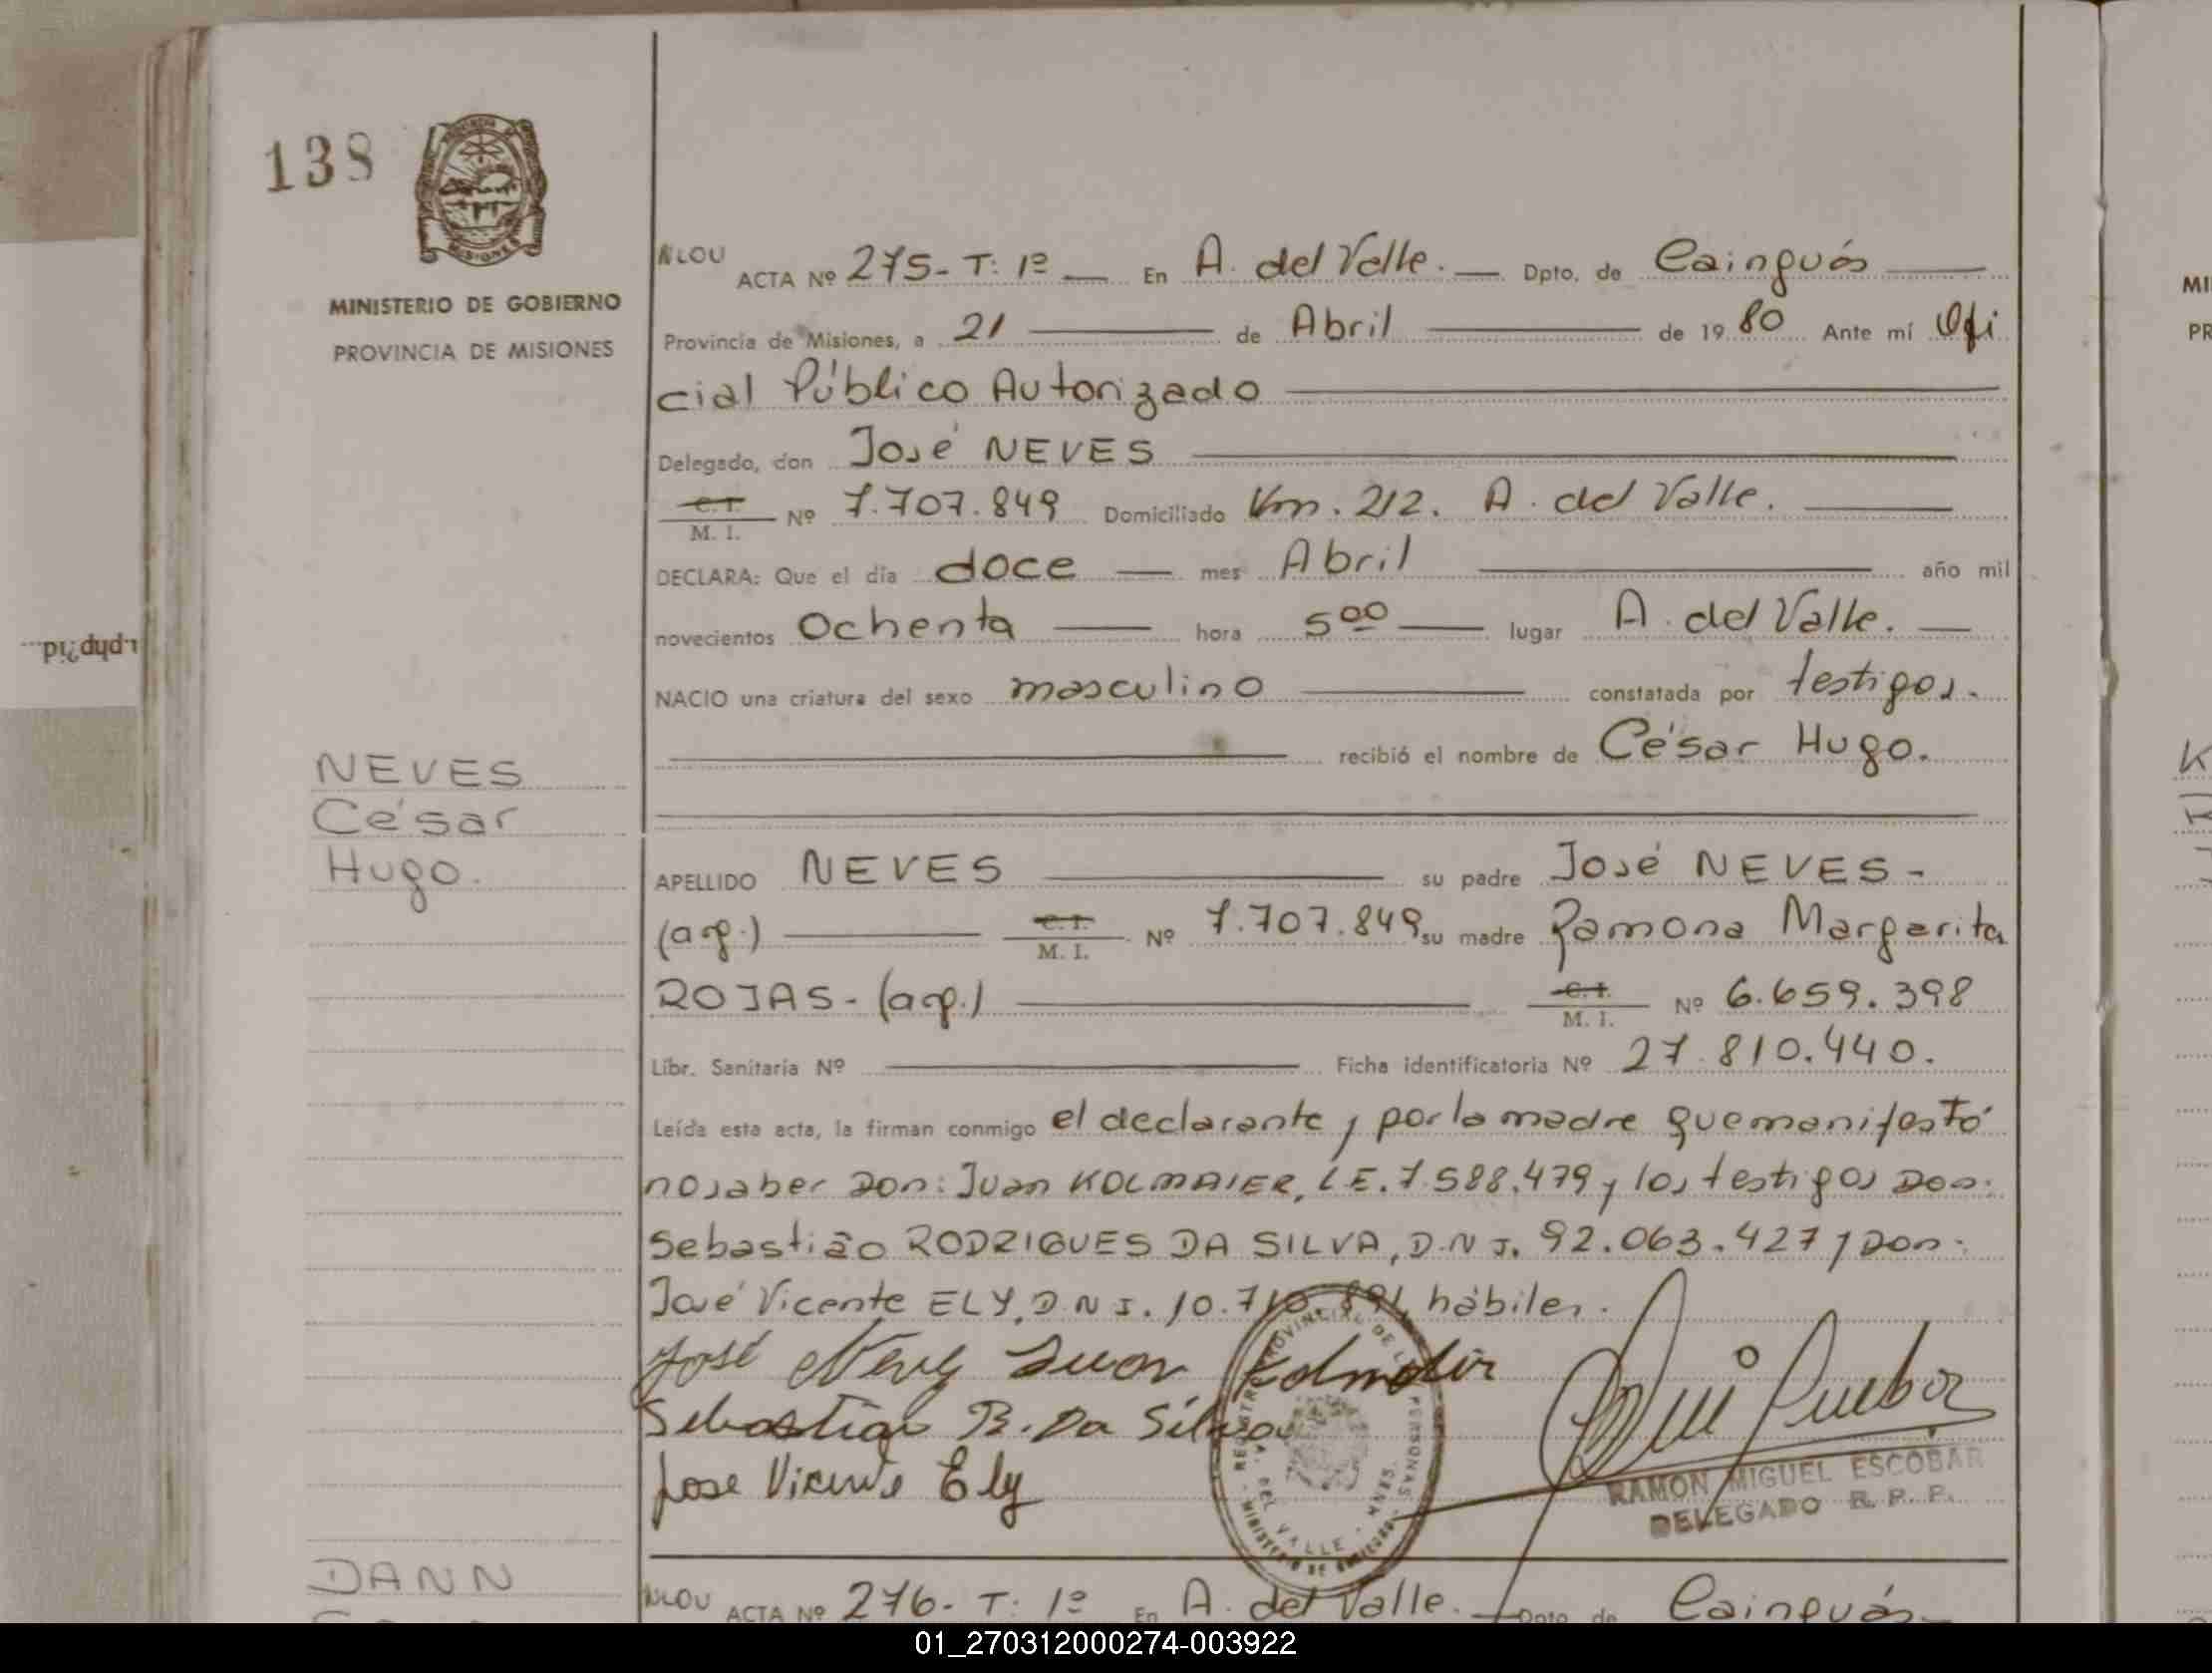 138
MINISTERIO DE GOBIERNO
PROVINCIA DE MISIONES
NLOU ACTA Nº 275- T: 1º — En A. del Valle. — Dpto. de Cainguás —
Provincia de Misiones, a 21 — de Abril — de 19 80 Ante mí Ofi
cial Público Autorizado —
Delegado, don José NEVES —
C. I.
M. I. Nº 7.707.849 Domiciliado Km. 212. A. del Valle. —
DECLARA: Que el día doce — mes Abril — año mil
novecientos Ochenta — hora 5⁰⁰ — lugar A. del Valle. —
NACIO una criatura del sexo masculino — constatada por testigos.
— recibió el nombre de César Hugo.
NEVES
César
Hugo.
APELLIDO NEVES — su padre José NEVES -
(arg.) — C. I. M. I. Nº 7.707.849 su madre Ramona Margarita
ROJAS - (arg.) — C. I. M. I. Nº 6.659.398
Libr. Sanitaria Nº — Ficha identificatoria Nº 27.810.440.
Leída esta acta, la firman conmigo el declarante y por la madre que manifestó
no saber Don: Juan KOLMAIER, L.E. 7.588.479 y los testigos Don:
Sebastião RODRIGUES DA SILVA, D.N.I. 92.063.427 y Don:
José Vicente ELY, D.N.I. 10.710.891, hábiles.
José Neves Juan Kolmaier
Sebastião R. Da Silva
Jose Vicente Ely
REGISTRO PROVINCIAL DE LAS PERSONAS
A. DEL VALLE
MINISTERIO DE GOBIERNO
RAMON MIGUEL ESCOBAR
DELEGADO R. P. P.
DANN
NLOU ACTA Nº 276- T: 1º En A. del Valle. — Dpto de Cainguás —
r.php?id...
MI
PR
K
01_270312000274-003922